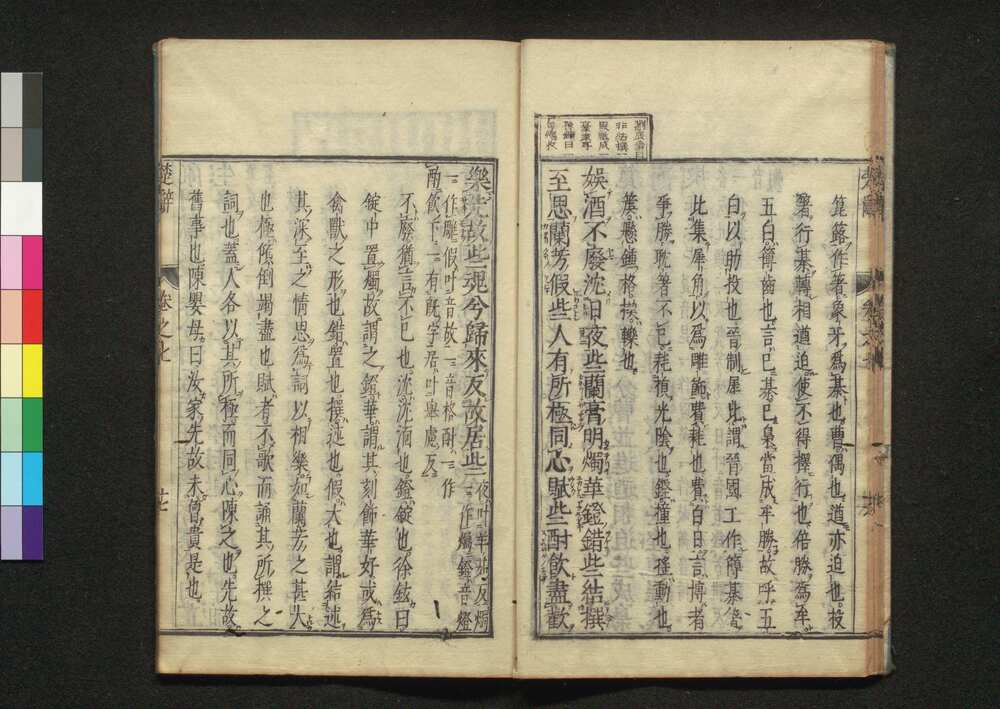 箟簬作箸象牙為棊也曹偶也遒亦迫也投
箸行棊轉相遒迫使不得擇行也倍勝為牟
五白簙齒也言已棊已梟當成牟勝故呼五
白以助投也晉制犀比謂晉國工作簙棊箸
比集犀角以為雕飾費耗也費白日言博者
爭勝耽著不已耗損光陰也鏗撞也搖動也
簴懸鍾格揳轢也
娛酒不廢沈日夜些蘭膏明燭華鐙錯些結撰
至思蘭芳假些人有所極同心賦些酎飲盡歡
樂先故些魂兮歸來反故居些
一作雕假叶音故
酎飲下一有既字居叶舉慮反
不廢猶言不已也沈沈湎也鐙錠也徐鉉曰
錠中置燭故謂之鐙華謂其刻飾華好或為
禽獸之形也錯置也撰述也假大也謂結述
其深至之情思為詞以相樂如蘭芳之甚大
也極傾倒竭盡也賦者不歌而誦其所撰之
詞也蓋人各以其所極而同心陳之也先故
舊事也陳嬰母曰汝家先故未曾貴是也
楚辭
卷之七